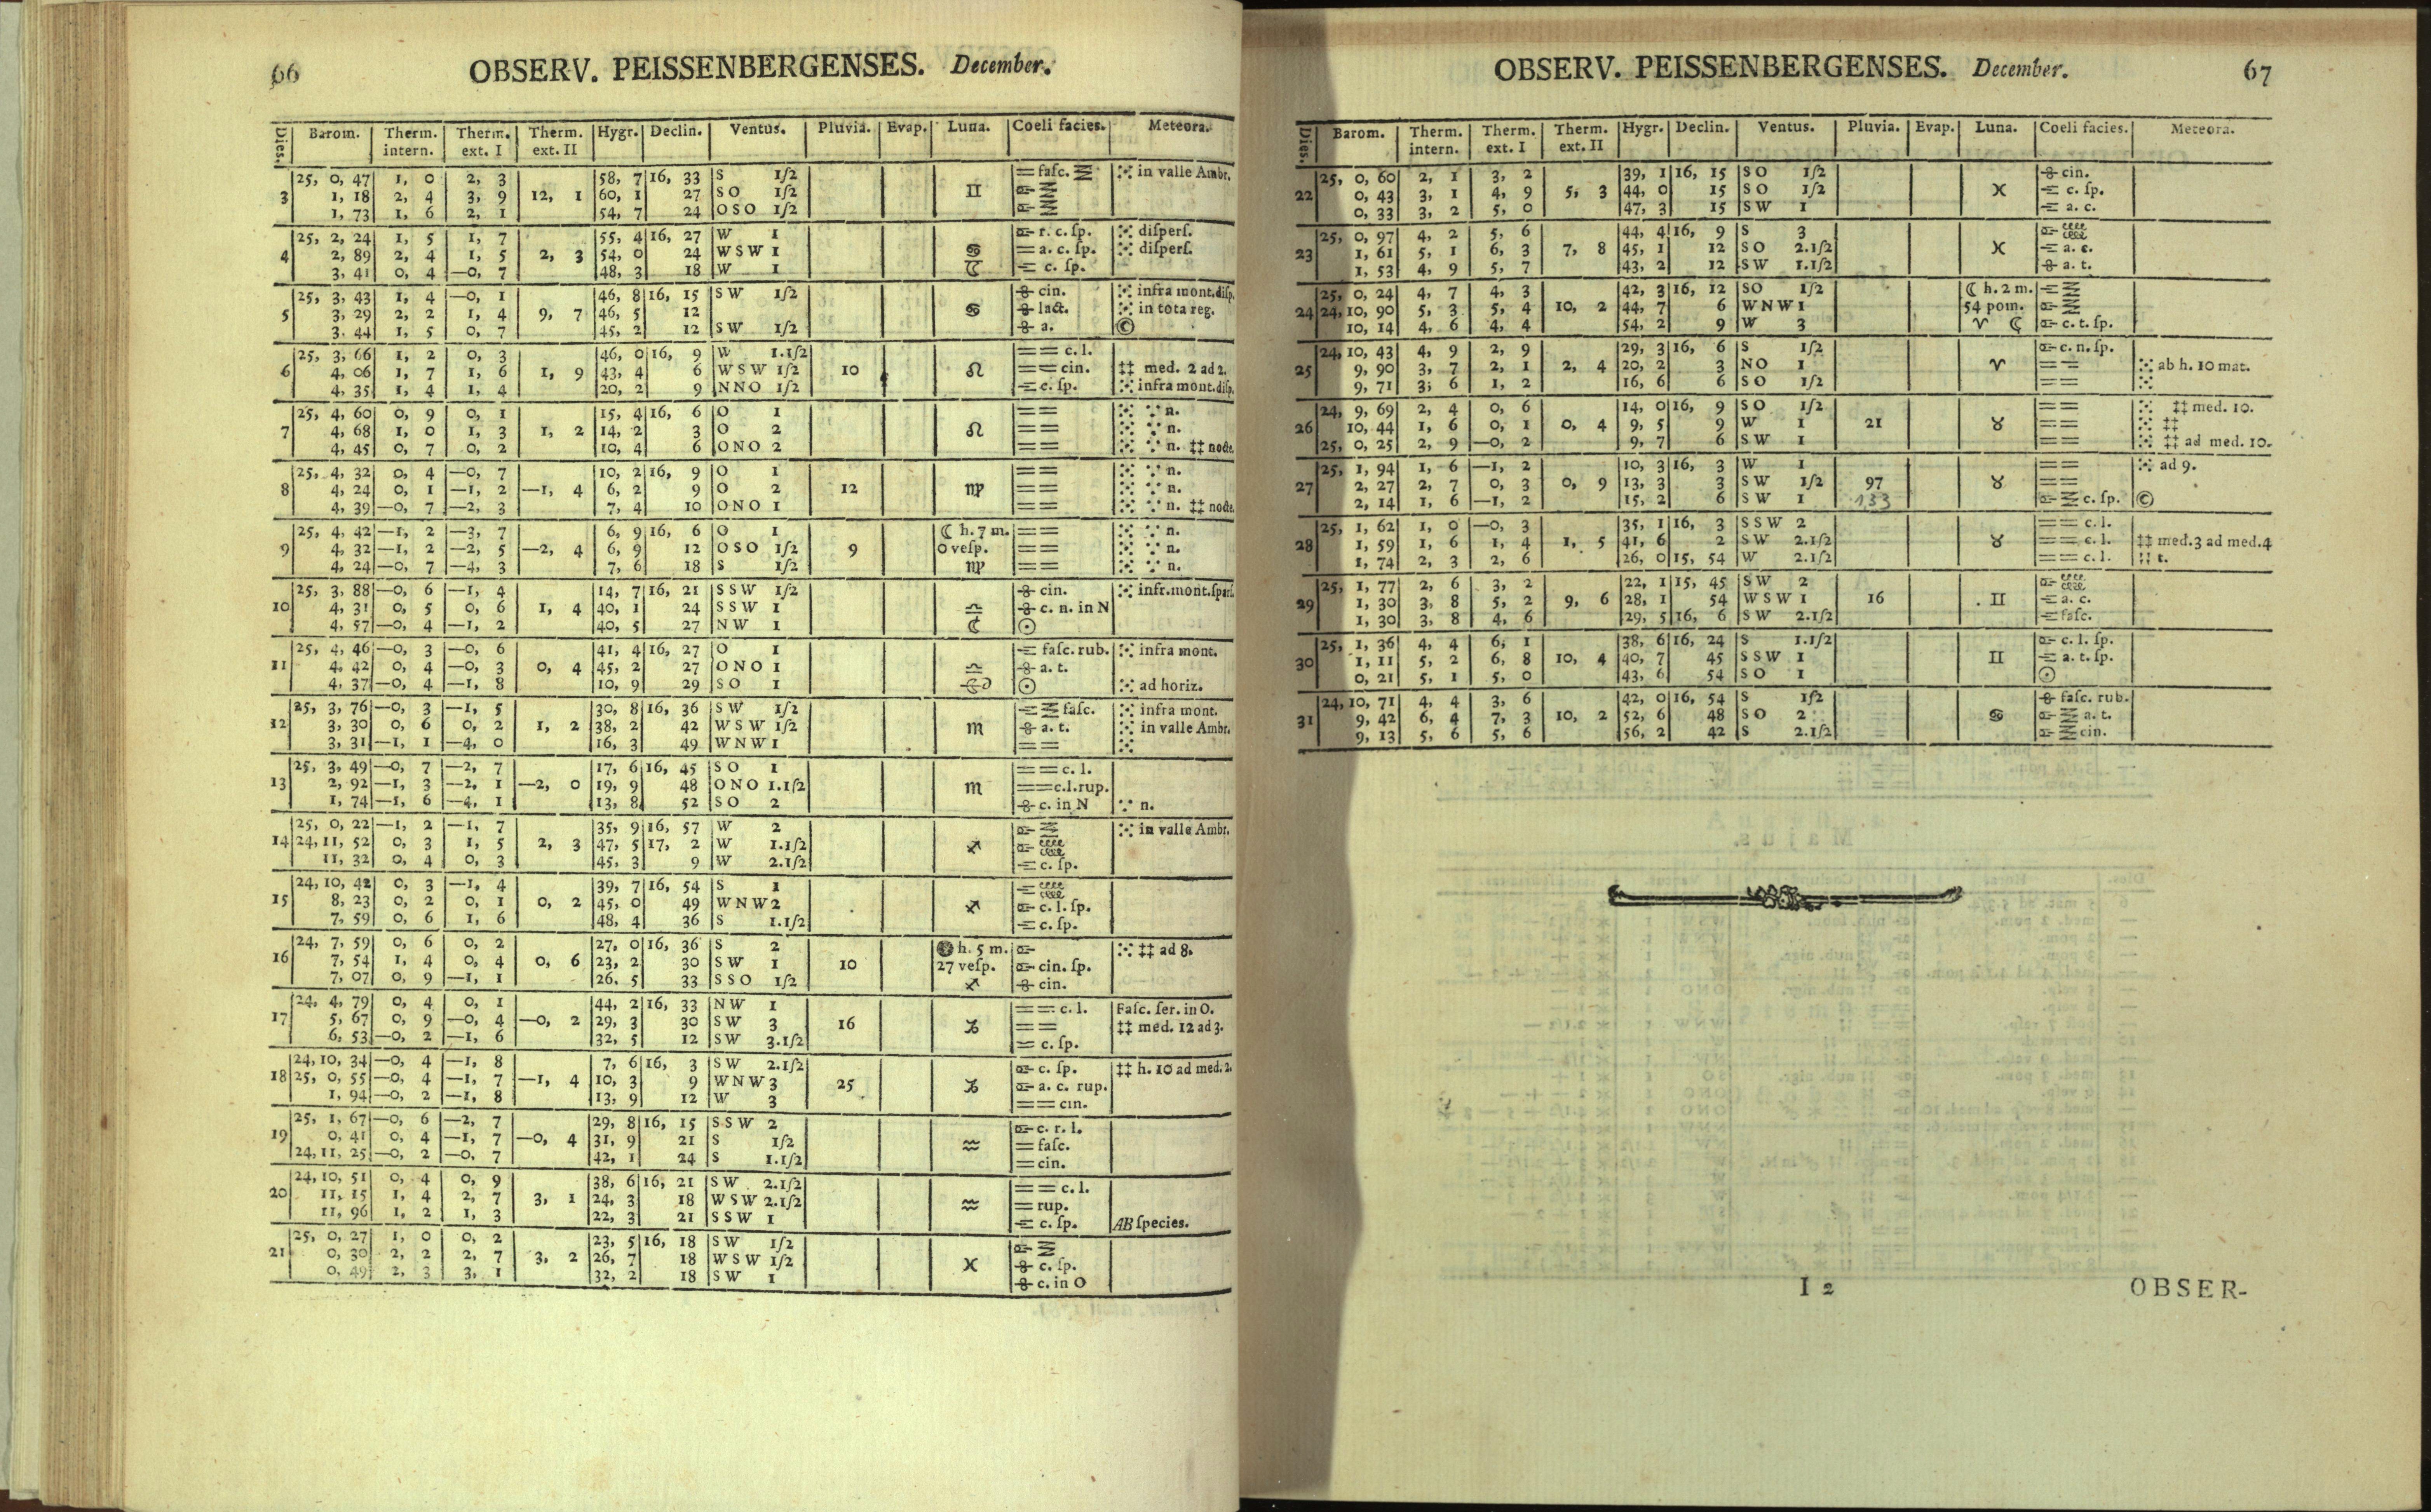 66
OBSERV. PEISSENBERGENSES. December.
Dies. Barom. Therm. intern. Therm. ext. I Therm. ext. II Hygr. Declin. Ventus. Pluvia. Evap. Luna. Coeli facies. Meteora.
25, 0, 47 1, 0 2, 3 58, 7 16, 33 S 1/2 = faſc. in valle Ambr.
3 1, 18 2, 4 3, 9 12, 1 60, 1 27 SO 1/2 ♊
1, 73 1, 6 2, 1 54, 7 24 OSO 1/2
25, 2, 24 1, 5 1, 7 55, 4 16, 27 W 1 r. c. ſp. diſperſ.
4 2, 89 2, 4 1, 5 2, 3 54, 0 24 WSW 1 ♋ = a. c. ſp. diſperſ.
3, 41 0, 4 —0, 7 48, 3 18 W 1 c. ſp.
25, 3, 43 1, 4 —0, 1 46, 8 16, 15 SW 1/2 cin. infra mont. diſp.
5 3, 29 2, 2 1, 4 9, 7 46, 5 12 ♋ lact. in tota reg.
3. 44 1, 5 0, 7 45, 2 12 SW 1/2 a. ©
25, 3, 66 1, 2 0, 3 46, 0 16, 9 W 1.1/2 == c. l.
6 4, 06 1, 7 1, 6 1, 9 43, 4 6 WSW 1/2 10 ♌ == cin. ‡‡ med. 2 ad 2.
4, 35 1, 4 1, 4 20, 2 9 NNO 1/2 c. ſp. infra mont. diſp.
25, 4, 60 0, 9 0, 1 15, 4 16, 6 O 1 == n.
7 4, 68 1, 0 1, 3 1, 2 14, 2 3 O 2 ♌ == n.
4, 45 0, 7 0, 2 10, 4 6 ONO 2 == n. ‡‡ nocte.
25, 4, 32 0, 4 —0, 7 10, 2 16, 9 O 1 == n.
8 4, 24 0, 1 —1, 2 —1, 4 6, 2 9 O 2 12 ♍ == n.
4, 39 —0, 7 —2, 3 7, 4 10 ONO 1 == n. ‡‡ nocte.
25, 4, 42 —1, 2 —3, 7 6, 9 16, 6 O 1 ☾ h. 7 m. == n.
9 4, 32 —1, 2 —2, 5 —2, 4 6, 9 12 OSO 1/2 9 0 veſp. == n.
4, 24 —0, 7 —4, 3 7, 6 18 S 1/2 ♍ == n.
25, 3, 88 —0, 6 —1, 4 14, 7 16, 21 SSW 1/2 cin. infr. mont. ſparſ.
10 4, 31 0, 5 0, 6 1, 4 40, 1 24 SSW 1 ♎ c. n. in N
4, 57 —0, 4 —1, 2 40, 5 27 NW 1 ☾ ⊙
25, 4, 46 —0, 3 —0, 6 41, 4 16, 27 O 1 faſc. rub. infra mont.
11 4, 42 0, 4 —0, 3 0, 4 45, 2 27 ONO 1 ♎ a. t.
4, 37 —0, 4 —1, 8 10, 9 29 SO 1 ⊙ ad horiz.
25, 3, 76 —0, 3 —1, 5 30, 8 16, 36 SW 1/2 faſc. infra mont.
12 3, 30 0, 6 0, 2 1, 2 38, 2 42 WSW 1/2 ♏ a. t. in valle Ambr.
3, 31 —1, 1 —4, 0 16, 3 49 WNW 1 ==
25, 3, 49 —0, 7 —2, 7 17, 6 16, 45 SO 1 == c. l.
13 2, 92 —1, 3 —2, 1 —2, 0 19, 9 48 ONO 1.1/2 ♏ == c. l. rup.
1, 74 —1, 6 —4, 1 13, 8 52 SO 2 c. in N n.
25, 0, 22 —1, 2 —1, 7 35, 9 16, 57 W 2 in valle Ambr.
14 24, 11, 52 0, 3 1, 5 2, 3 47, 5 17, 2 W 1.1/2 ♐
11, 32 0, 4 0, 3 45, 3 9 W 2.1/2 c. ſp.
24, 10, 42 0, 3 —1, 4 39, 7 16, 54 S 1
15 8, 23 0, 2 0, 1 0, 2 45, 0 49 WNW 2 ♐ c. l. ſp.
7, 59 0, 6 1, 6 48, 4 36 S 1.1/2 c. ſp.
24, 7, 59 0, 6 0, 2 27, 0 16, 36 S 2 h. 5 m. ‡‡ ad 8.
16 7, 54 1, 4 0, 4 0, 6 23, 2 30 SW 1 10 27 veſp. cin. ſp.
7, 07 0, 9 —1, 1 26, 5 33 SSO 1/2 ♐ cin.
24, 4, 79 0, 4 0, 1 44, 2 16, 33 NW 1 == c. l. Faſc. ſer. in O.
17 5, 67 0, 9 —0, 4 —0, 2 29, 3 30 SW 3 16 ♑ == ‡‡ med. 12 ad 3.
6, 53 —0, 2 —1, 6 32, 5 12 SW 3.1/2 = c. ſp.
24, 10, 34 —0, 4 —1, 8 7, 6 16, 3 SW 2.1/2 c. ſp. ‡‡ h. 10 ad med. 2.
18 25, 0, 55 —0, 4 —1, 7 —1, 4 10, 3 9 WNW 3 25 ♑ a. c. rup.
1, 94 —0, 2 —1, 8 13, 9 12 W 3 == cin.
25, 1, 67 —0, 6 —2, 7 29, 8 16, 15 SSW 2 c. r. l.
19 0, 41 0, 4 —1, 7 —0, 4 31, 9 21 S 1/2 ♒ = faſc.
24, 11, 25 —0, 2 —0, 7 42, 1 24 S 1.1/2 = cin.
24, 10, 51 0, 4 0, 9 38, 6 16, 21 SW 2.1/2 == c. l.
20 11, 15 1, 4 2, 7 3, 1 24, 3 18 WSW 2.1/2 ♒ = rup.
11, 96 1, 2 1, 3 22, 3 21 SSW 1 c. ſp. AB ſpecies.
25, 0, 27 1, 0 0, 2 23, 5 16, 18 SW 1/2
21 0, 30 2, 2 2, 7 3, 2 26, 7 18 WSW 1/2 ♓ c. ſp.
0, 49 2, 3 3, 1 32, 2 18 SW 1 c. in O
OBSERV. PEISSENBERGENSES. December.
67
Dies. Barom. Therm. intern. Therm. ext. I Therm. ext. II Hygr. Declin. Ventus. Pluvia. Evap. Luna. Coeli facies. Meteora.
25, 0, 60 2, 1 3, 2 39, 1 16, 15 SO 1/2 cin.
22 0, 43 3, 1 4, 9 5, 3 44, 0 15 SO 1/2 ♓ c. ſp.
0, 33 3, 2 5, 0 47, 3 15 SW 1 a. c.
25, 0, 97 4, 2 5, 6 44, 4 16, 9 S 3
23 1, 61 5, 1 6, 3 7, 8 45, 1 12 SO 2.1/2 ♓ a. c.
1, 53 4, 9 5, 7 43, 2 12 SW 1.1/2 a. t.
25, 0, 24 4, 7 4, 3 42, 3 16, 12 SO 1/2 ☾ h. 2 m.
24 24, 10, 90 5, 3 5, 4 10, 2 44, 7 6 WNW 1 54 pom.
10, 14 4, 6 4, 4 54, 2 9 W 3 ♈ ☾ c. t. ſp.
24, 10, 43 4, 9 2, 9 29, 3 16, 6 S 1/2 c. n. ſp.
25 9, 90 3, 7 2, 1 2, 4 20, 2 3 NO 1 ♈ == ab h. 10 mat.
9, 71 3; 6 1, 2 16, 6 6 SO 1/2 ==
24, 9, 69 2, 4 0, 6 14, 0 16, 9 SO 1/2 == ‡‡ med. 10.
26 10, 44 1, 6 0, 1 0, 4 9, 5 9 W 1 21 ♉ == ‡‡
25, 0, 25 2, 9 —0, 2 9, 7 6 SW 1 == ‡‡ ad med. 10.
25, 1, 94 1, 6 —1, 2 10, 3 16, 3 W 1 == ad 9.
27 2, 27 2, 7 0, 3 0, 9 13, 3 3 SW 1/2 97 ♉ ==
2, 14 1, 6 —1, 2 15, 2 6 SW 1 133 c. ſp. ©
25, 1, 62 1, 0 —0, 3 35, 1 16, 3 SSW 2 == c. l.
28 1, 59 1, 6 1, 4 1, 5 41, 6 2 SW 2.1/2 ♉ == c. l. ‡‡ med. 3 ad med. 4
1, 74 2, 3 2, 6 26, 0 15, 54 W 2.1/2 == c. l. t.
25, 1, 77 2, 6 3, 2 22, 1 15, 45 SW 2
29 1, 30 3, 8 5, 2 9, 6 28, 1 54 WSW 1 16 ♊ a. c.
1, 30 3, 8 4, 6 29, 5 16, 6 SW 2.1/2 faſc.
25, 1, 36 4, 4 6, 1 38, 6 16, 24 S 1.1/2 c. l. ſp.
30 1, 11 5, 2 6, 8 10, 4 40, 7 45 SSW 1 ♊ a. t. ſp.
0, 21 5, 1 5, 0 43, 6 54 SO 1 ⊙
24, 10, 71 4, 4 3, 6 42, 0 16, 54 S 1/2 faſc. rub.
31 9, 42 6, 4 7, 3 10, 2 52, 6 48 SO 2 ♋ a. t.
9, 13 5, 6 5, 6 56, 2 42 S 2.1/2 cin.
I 2
OBSER-